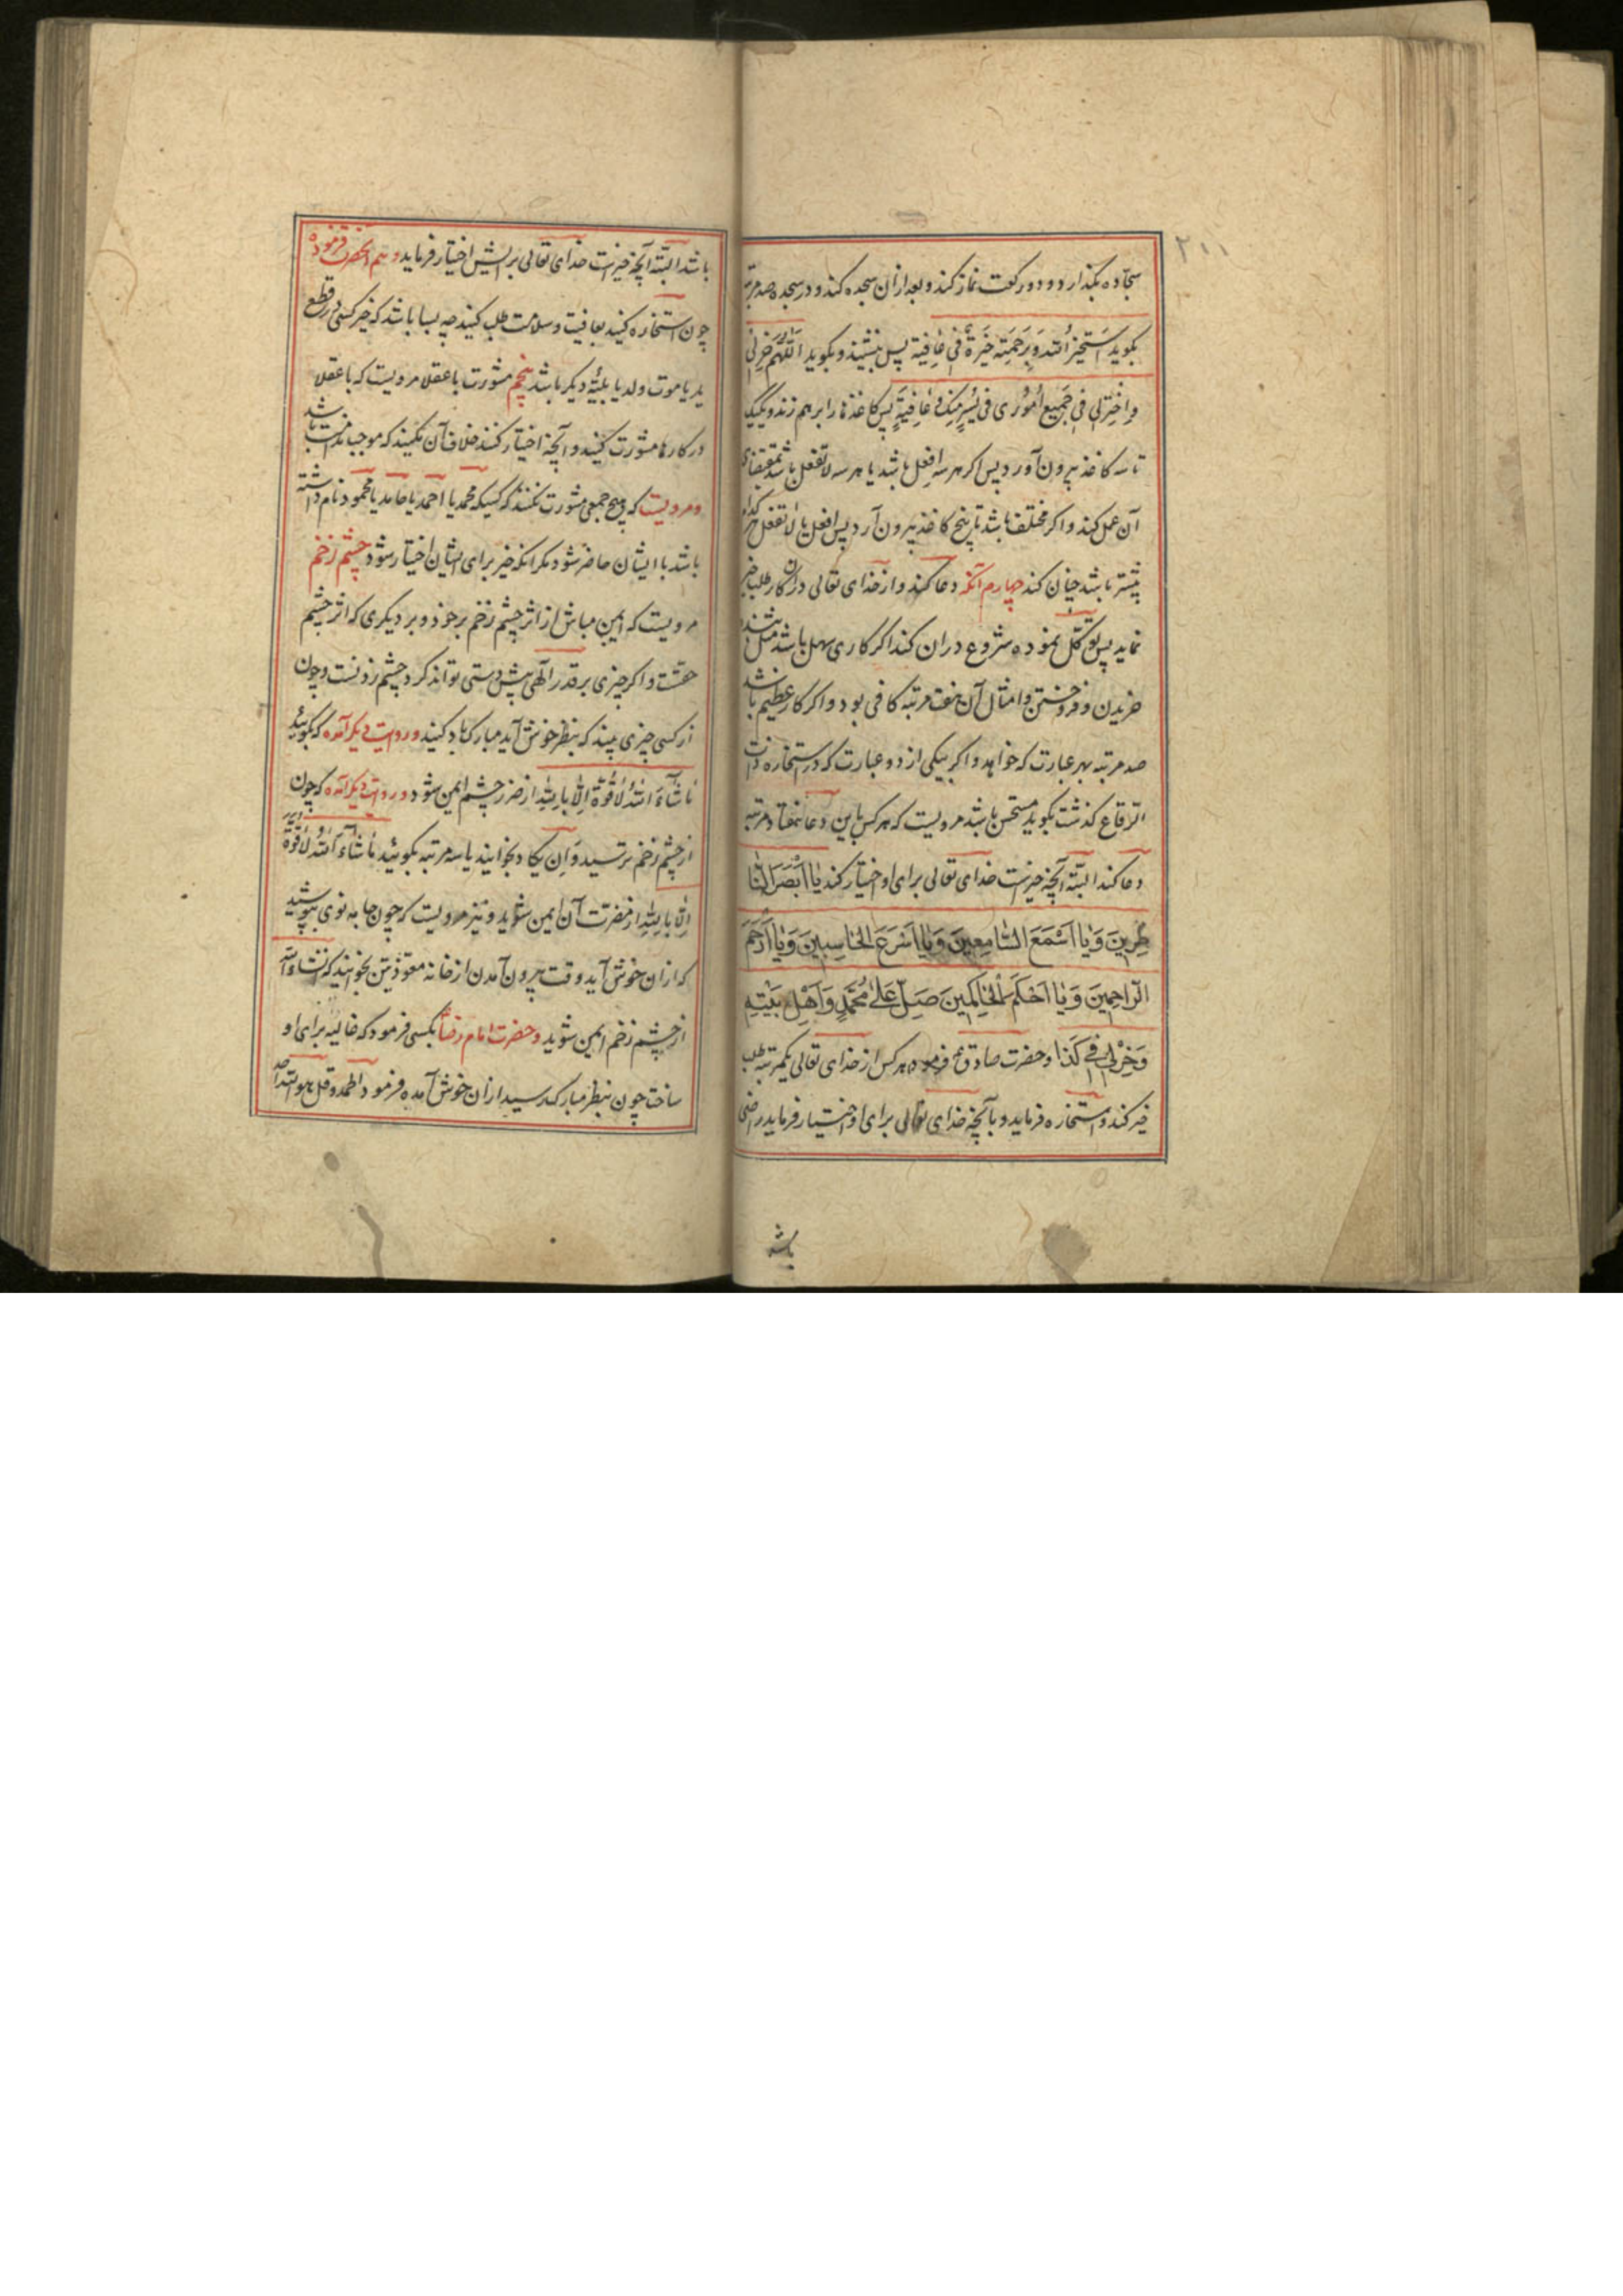 ۲۱۱
سجاده بگذارد و دو رکعت نماز کند و بعد ازان سجده کند و در سجده صد مرتبه
بگوید اَسْتَخیرُ اللهَ بِرَحْمَتِهِ خِیَرَةً فی عافِیَة پس بنشیند و بگوید اَللّهُمَّ خِرْلی
وَاخْتَرْلی فی جَمیعِ اُمُوری فی یُسْرٍ مِنْکَ وَ عافِیَةٍ پس کاغذها را برهم زند و یکیک
تا سه کاغذ بیرون آورد پس اکر هر سه افعل باشد یا هر سه لا تفعل باشد بمقتضای
آن عمل کند و اکر مختلف باشد تا پنج کاغذ بیرون آرد پس افعل یا لا تفعل هر کدام
بیشتر باشد چنان کند چهارم آنکه دعا کند و از خدای تعالی دران کار طلب خیر
نماید پس توکل نموده شروع دران کند اکر کاری سهل باشد مثل
خریدن و فروختن و امثال آن هفت مرتبه کافی بود و اکر کار عظیم باشد
صد مرتبه بهر عبارت که خواهد و اکر بیکی از دو عبارت که در استخاره ذات
الرقاع کذشت بکوید مستحسن باشد مرویست که هر کس باین دعا هفتاد مرتبه
دعا کند البته آنچه خیرست خدای تعالی برای او اختیار کند یا اَبْصَرَ النّا
ظِرینَ وَیا اَسْمَعَ السّامِعینَ وَیا اَسْرَعَ الحاسِبینَ وَیا اَرْحَمَ
الرّاحِمینَ وَیا اَحْکَمَ الْحاکِمینَ صَلِّ عَلی مُحَمَّدٍ وَاَهْلِ بَیْتِهِ
وَخِرْلی فی کَذا و حضرت صادق ع فرموده هر کس از خدای تعالی یکمرتبه طلب
خیر کند و استخاره فرماید و بآنچه خدای تعالی برای او اختیار فرماید راضی
باشد
باشد البته آنچه خیرست خدای تعالی برایش اختیار فرماید و هم آنحضرت فرموده
چون استخاره کنید بعافیت و سلامت طلب کنید چه بسا باشد که خیر کسی در قطع
ید یا موت ولد یا بلیّهٔ دیکر باشد پنجم مشورت با عقلا مرویست که با عقلا
در کارها مشورت کنید و آنچه اختیار کنند خلاف آن نکنید که موجب ندامت باشد
و مرویست که هیچ جمعی مشورت نکنند که کسیکه محمد یا احمد یا حامد یا محمود نام داشته
باشد با ایشان حاضر شود مکر آنکه خیر برای ایشان اختیار شود چشم زخم
مرویست که ایمن مباش از اثر چشم زخم بر خود و بر دیکری که اثر چشم
حقست و اکر چیزی بر قدر الهی پیش دستی تواند کرد چشم زدنست و چون
از کسی چیزی بیند که بنظر خوش آید مبارک باد کنید و در روایت دیکر آمده که بکوئید
ما شاءَ اللهُ لا قُوَّةَ اِلّا بِاللهِ از ضرر چشم ایمن شود و در روایت دیکر آمده که چون
از چشم زخم ترسید وَاِن یکاد بخوانید یا سه مرتبه بکوئید ما شاءَ اللهُ لا قُوَّةَ
اِلّا بِاللهِ از مضرت آن ایمن شوید و نیز مرویست که چون جامه نوی بپوشید
که ازان خوش آید وقت بیرون آمدن از خانه معوذتین بخوانید که انشاء الله
از چشم زخم ایمن شوید و حضرت امام رضا بکسی فرمود که غالیه برای او
ساخت چون بنظر مبارک رسید ازان خوش آمده فرمود الحمد و قل هو الله احد